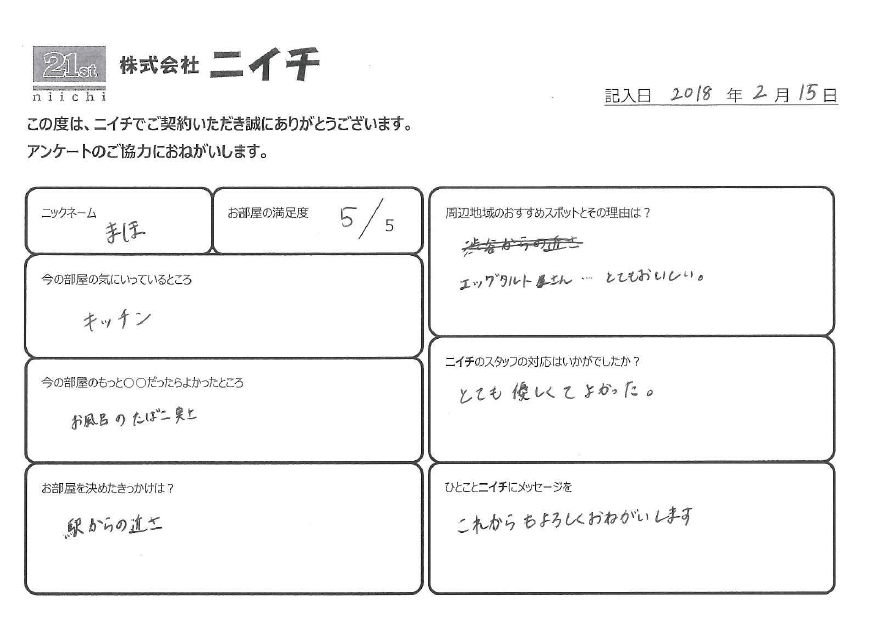 21st
niichi
株式会社 ニイチ
記入日 2018 年 2 月 15 日
この度は、ニイチでご契約いただき誠にありがとうございます。
アンケートのご協力におねがいします。
ニックネーム
まほ
お部屋の満足度 5/5
今の部屋の気にいっているところ
キッチン
今の部屋のもっと〇〇だったらよかったところ
お風呂のたばこ臭
お部屋を決めたきっかけは？
駅からの近さ
周辺地域のおすすめスポットとその理由は？
渋谷からの近さ
エッグタルト屋さん … とてもおいしい。
ニイチのスタッフの対応はいかがでしたか？
とても優しくてよかった。
ひとことニイチにメッセージを
これからもよろしくおねがいします